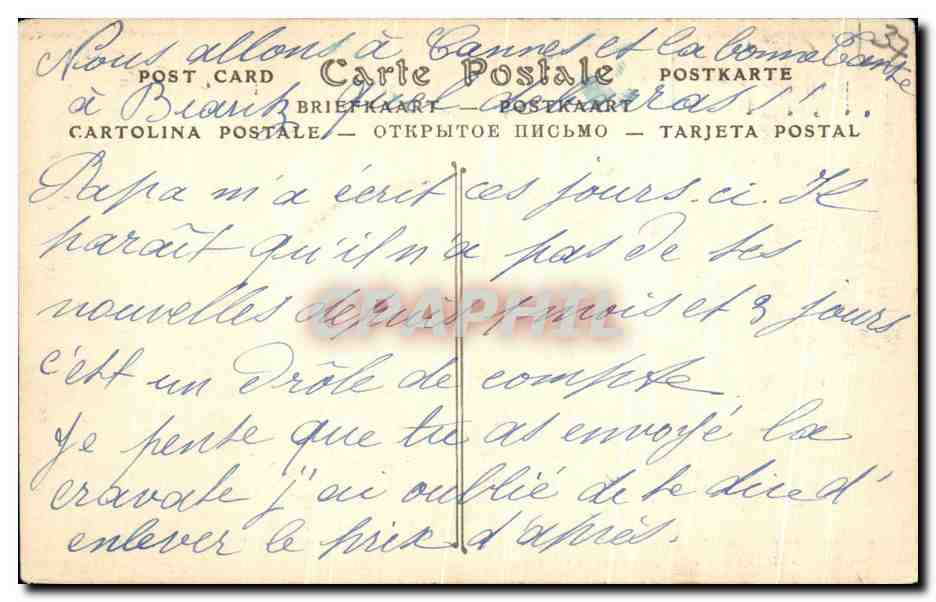 37
Nous allons à Cannes et la bonne Tante
POST CARD Carte Postale POSTKARTE
à Biaritz quel embarras !!.....
BRIEFKAART — POSTKAART
CARTOLINA POSTALE — ОТКРЫТОЕ ПИСЬМО — TARJETA POSTAL
Papa m'a écrit ces jours-ci. Il
paraît qu'il n'a pas de tes
nouvelles depuis 1 mois et 3 jours
c'est un drôle de compte
Je pense que tu as envoyé la
cravate j'ai oublié de te dire d'
enlever le prix d'après.
GRAPHIL